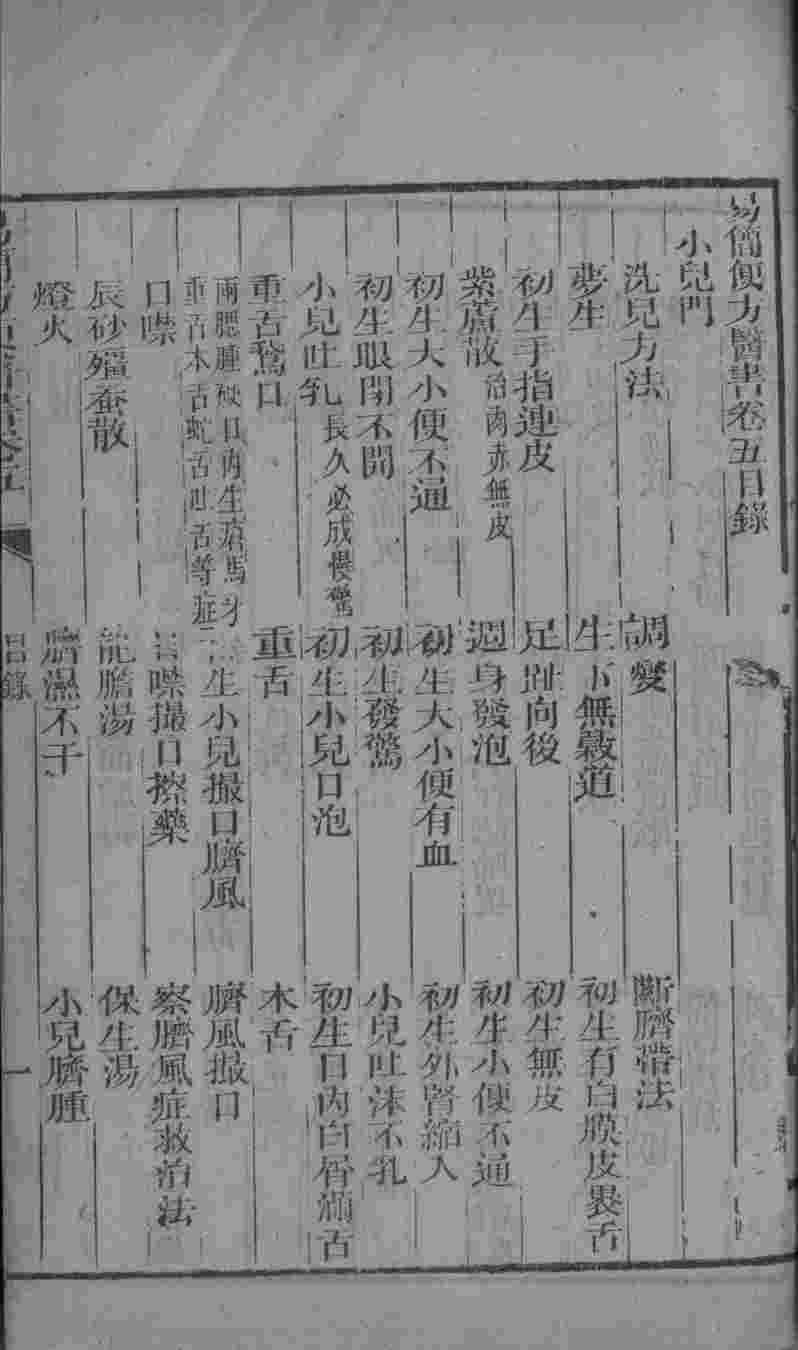 易簡便方醫書卷五目錄
小兒門
洗兒方法 調變 斷臍帶法
夢生 生下無穀道 初生有白膜皮裹舌
初生手指連皮 足趾向後 初生無皮
紫蘆散 治肉赤無皮 週身發泡 初生小便不通
初生大小便不通 初生大小便有血 初生外腎縮入
初生眼閉不開 初生發驚 小兒吐沫不乳
小兒吐乳 長久必成慢驚 初生小兒口泡 初生口內白屑滿舌
重舌鵞口 重舌 木舌
兩腮腫硬口內生瘡馬牙
重舌木舌蛇舌吐舌等症 生小兒撮口臍風 臍風撮口
口噤 口噤撮口擦藥 察臍風症救治法
辰砂殭蚕散 龍膽湯 保生湯
燈火 臍濕不干 小兒臍腫
易簡方便醫書卷五 目錄 一